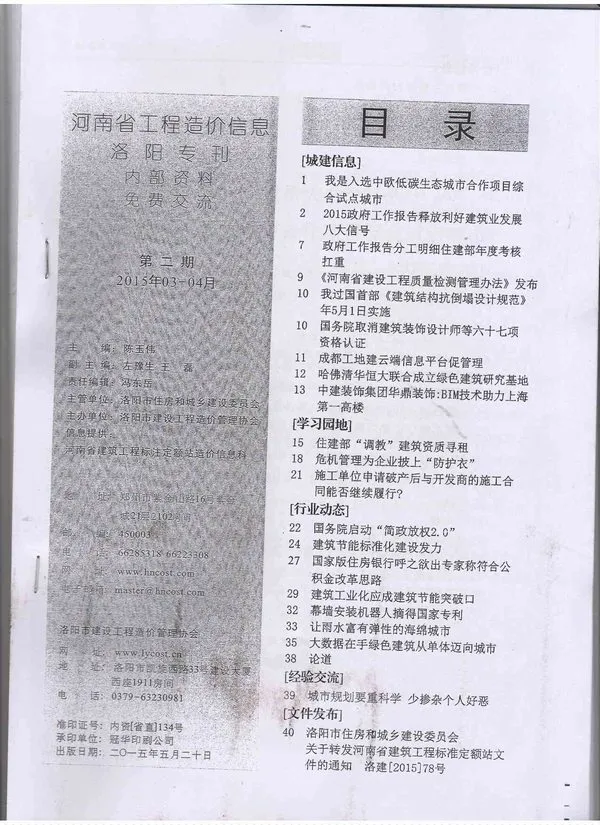 河南省工程造价信息
洛阳专刊
内部资料
免费交流
第二期
2015年03-04月
主 编：陈玉伟
副主编：左豫生 王 磊
责任编辑：冯东岳
主管单位：洛阳市住房和城乡建设委员会
主办单位：洛阳市建设工程造价管理协会
信息提供：
河南省建筑工程标注定额站造价信息科
地 址：郑州市紫金山路16号
城21层2102号间
邮 编：450003
电 话：66285318 66223308
网 www.hncost.com
电子邮箱：master@hncost.com
洛阳市建设工程造价管理协会
网 址：www.lycost.cn
地 址：洛阳市凯旋西路33号建设大厦
西座1911房间
电 话：0379-63230981
准印证号：内资[省直]134号
承印单位：冠华印刷公司
出版日期：二〇一五年五月二十日
目 录
[城建信息]
1 我是入选中欧低碳生态城市合作项目综
合试点城市
2 2015政府工作报告释放利好建筑业发展
八大信号
7 政府工作报告分工明细住建部年度考核
扛重
9 《河南省建设工程质量检测管理办法》发布
10 我过国首部《建筑结构抗倒塌设计规范》
年5月1日实施
10 国务院取消建筑装饰设计师等六十七项
资格认证
11 成都工地建云端信息平台促管理
12 哈佛清华恒大联合成立绿色建筑研究基地
13 中建装饰集团华鼎装饰:BIM技术助力上海
第一高楼
[学习园地]
15 住建部“调教”建筑资质寻租
18 危机管理为企业披上“防护衣”
21 施工单位申请破产后与开发商的施工合
同能否继续履行?
[行业动态]
22 国务院启动“简政放权2.0”
24 建筑节能标准化建设发力
27 国家版住房银行呼之欲出专家称符合公
积金改革思路
29 建筑工业化应成建筑节能突破口
32 幕墙安装机器人摘得国家专利
33 让雨水富有弹性的海绵城市
35 大数据在手绿色建筑从单体迈向城市
38 论道
[经验交流]
39 城市规划要重科学 少掺杂个人好恶
[文件发布]
40 洛阳市住房和城乡建设委员会
关于转发河南省建筑工程标准定额站文
件的通知 洛建[2015]78号